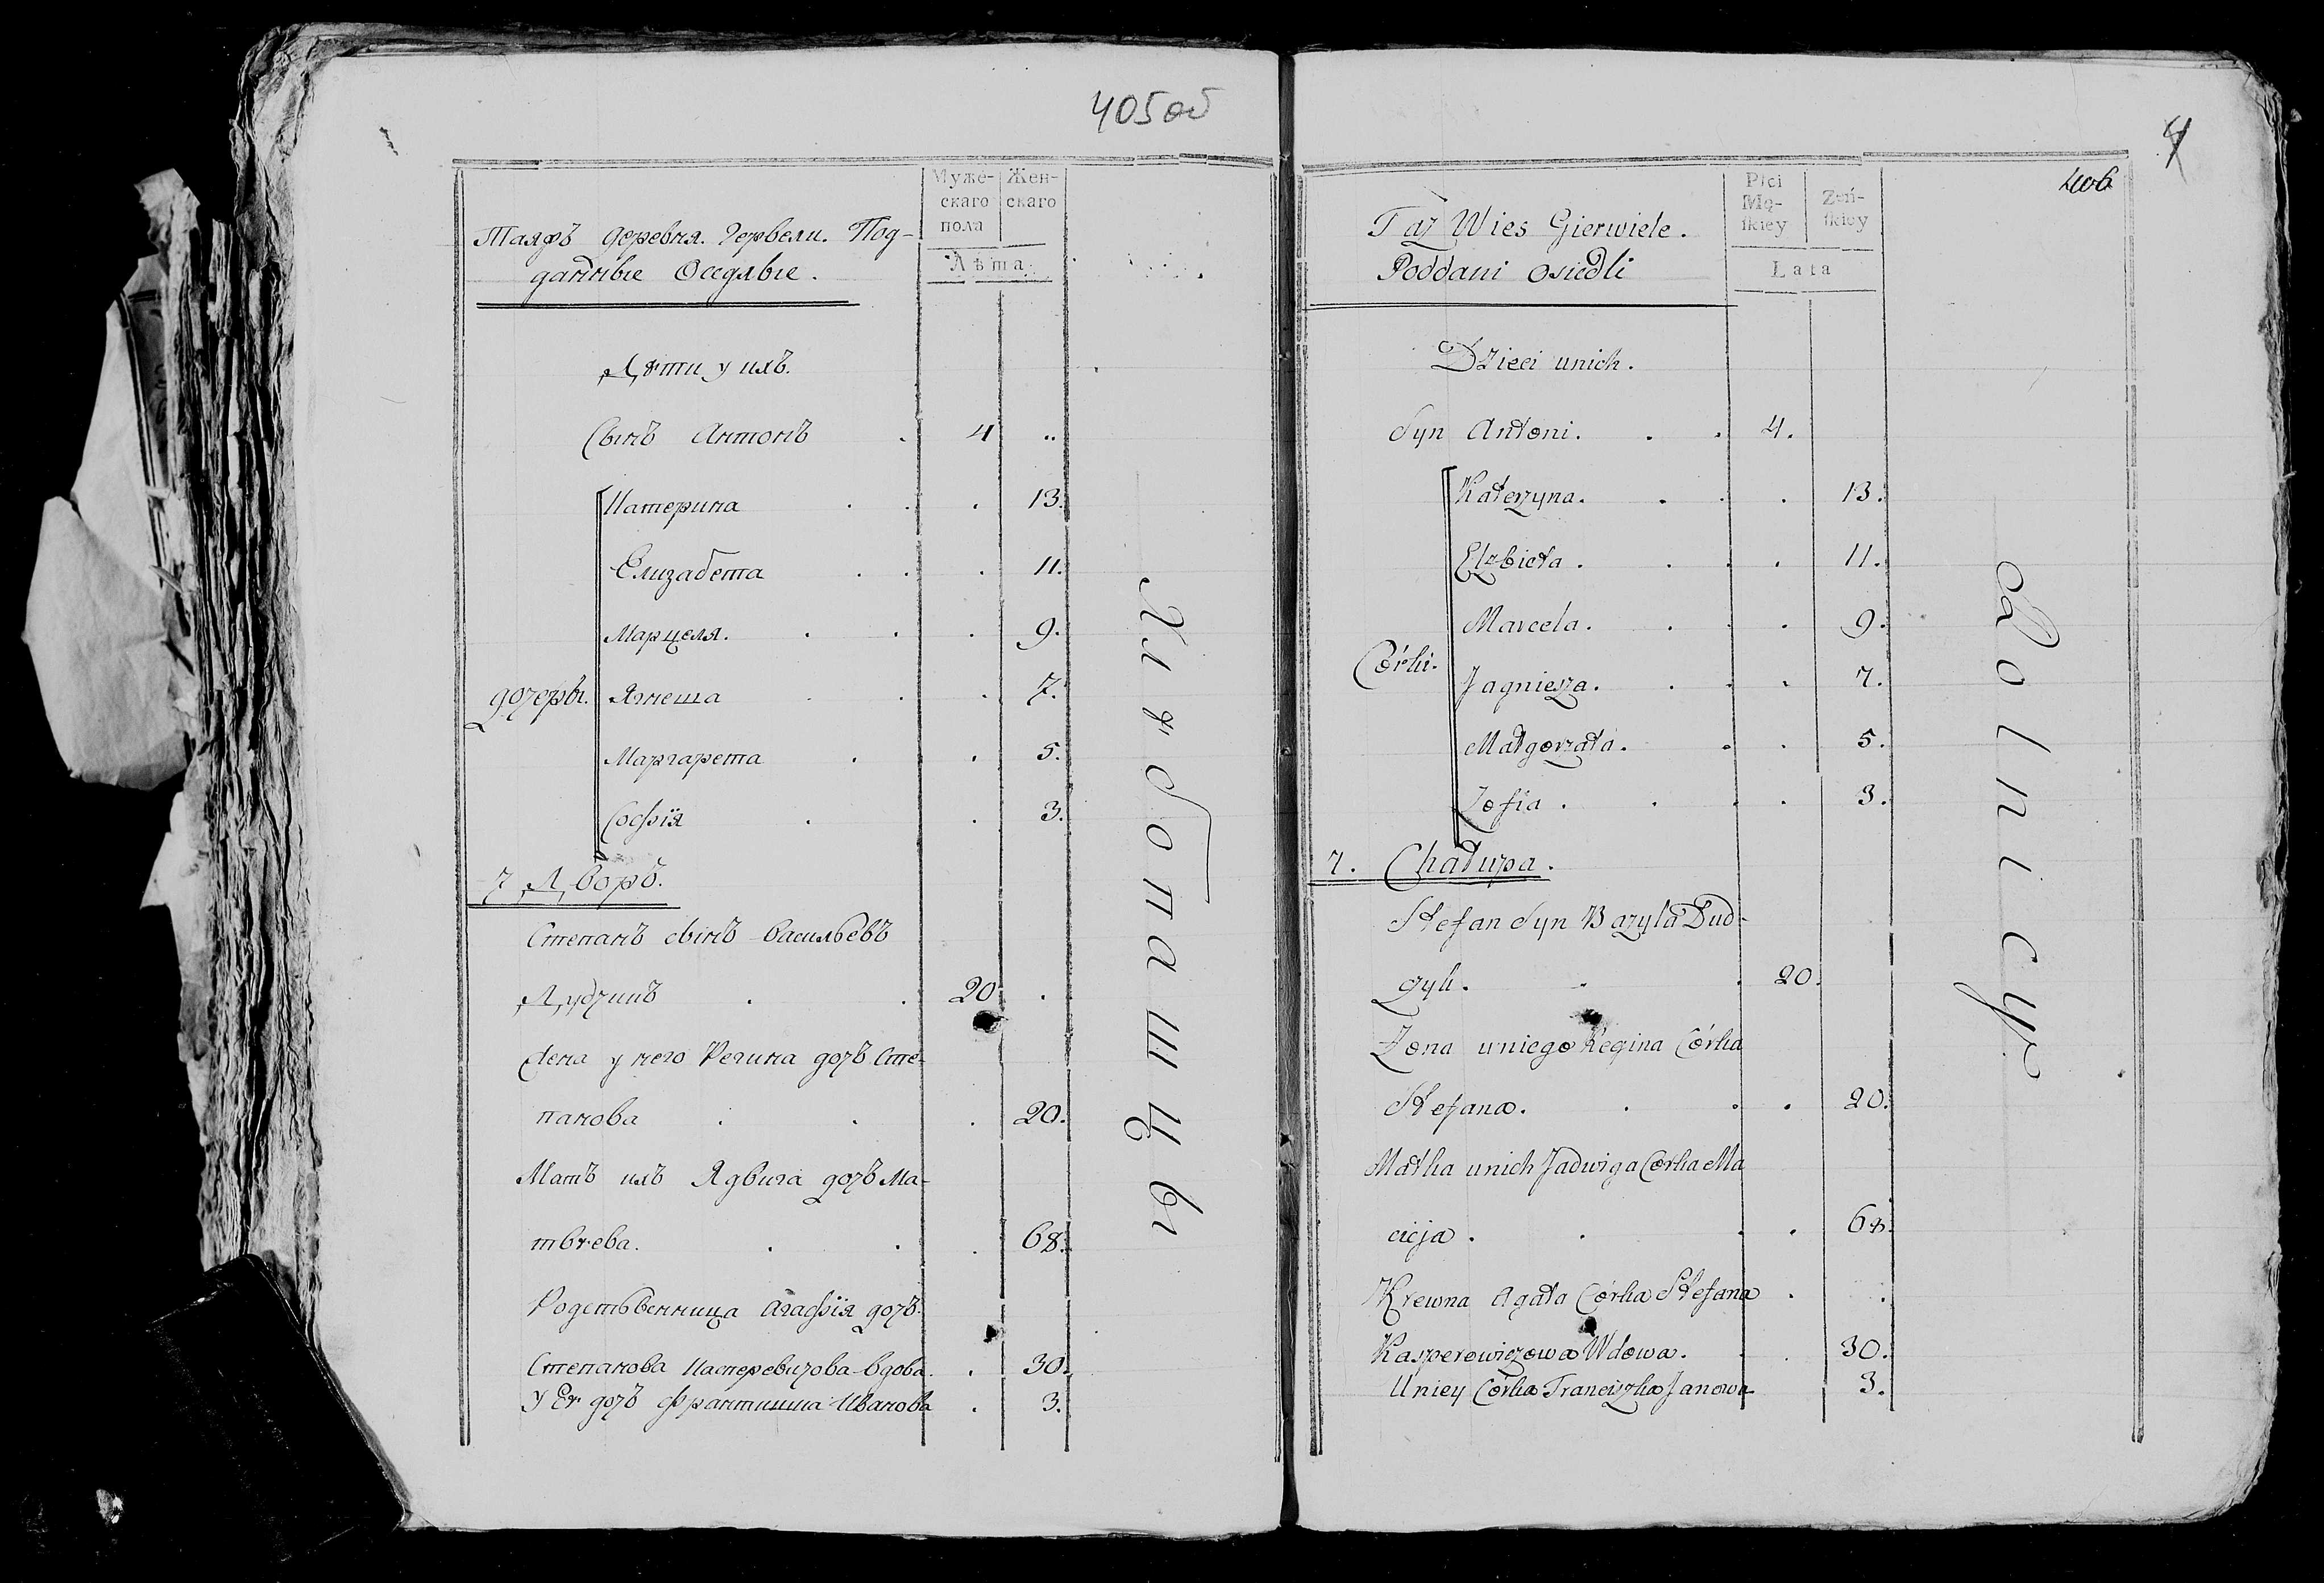 405 об
Муже-
скаго
пола
Жен-
скаго
Лѣта
Таяжъ деревня Гервели. Под-
данные Оседлые.
Дѣти у ихъ.
Сынъ Антонъ . 4 „
дочеры.
Катерина . . . 13.
Елизабета . . . 11.
Марцеля. . . . 9.
Ягнеша . . . 7.
Маргарета . . . 5.
Софія . . 3.
7 Дворъ.
Степанъ сынъ Васильевъ
Дудзикъ . . 20. .
Жена у него Регина дочь Сте-
панова . . . 20.
Мать ихъ Ядвига дочь Ма-
твѣева. . . . 68.
Родственница Агафія дочь
Степанова Касперевичова вдова. . 30.
У Ев дочь Францишка Иванова . 3.
Хлѣбопашцы
4
406
Płci
Mę-
skiey
Żeń-
skiey
Lata
Taż Wies Gierwiele.
Poddani osiedli
Dzieci unich.
Syn Antoni. . . 4.
Córki.
Katerzyna. . . . 13.
Elzbieta . . . . 11.
Marcela. . . . 9.
Jagniesza. . . . 7.
Małgorzata. . . 5.
Zofia . . . . 3.
7. Chałupa.
Stefan Syn Bazyla Dud-
zyk. . . 20.
Zona uniego Regina Córka
Stefana. . . . 20.
Matka unich Jadwiga Corka Ma
cieja . . . . 68.
Krewna Agata Córka Stefana . .
Kasperowiczowa Wdowa. . . 30.
Uniey Córka Franciszka Janowa 3.
Rolnicy